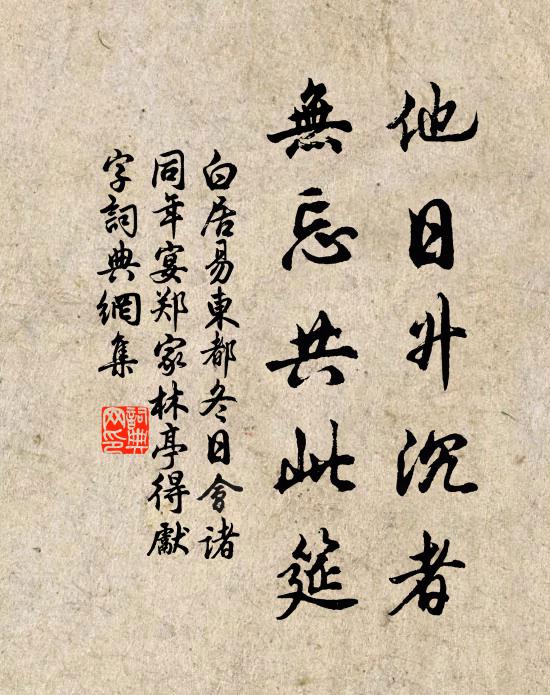 他日升沉者
無忘共此筵
白居易東都冬日會諸
同年宴郑家林亭得獻
字詞典網集
詞典网印